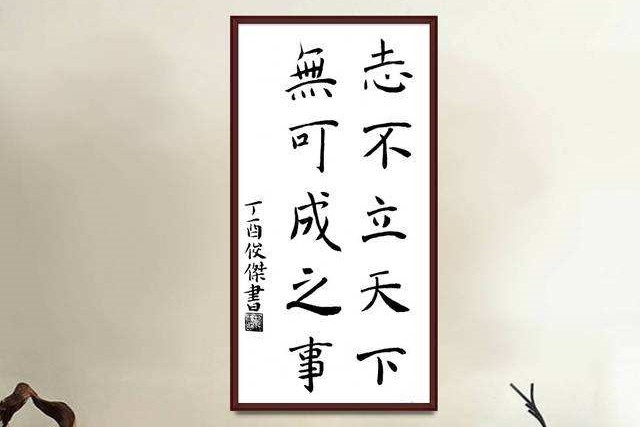 志不立天下
無可成之事
丁酉俊傑書